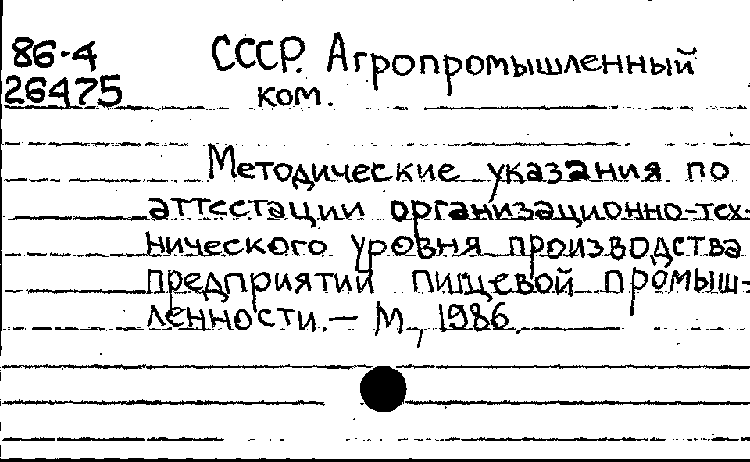 86-4 СССР. Агропромышленный
26475 ком.
Методические указания по
аттестации организационно-тех-
нического уровня производства
предприятий пищевой промыш-
ленности. — М., 1986.